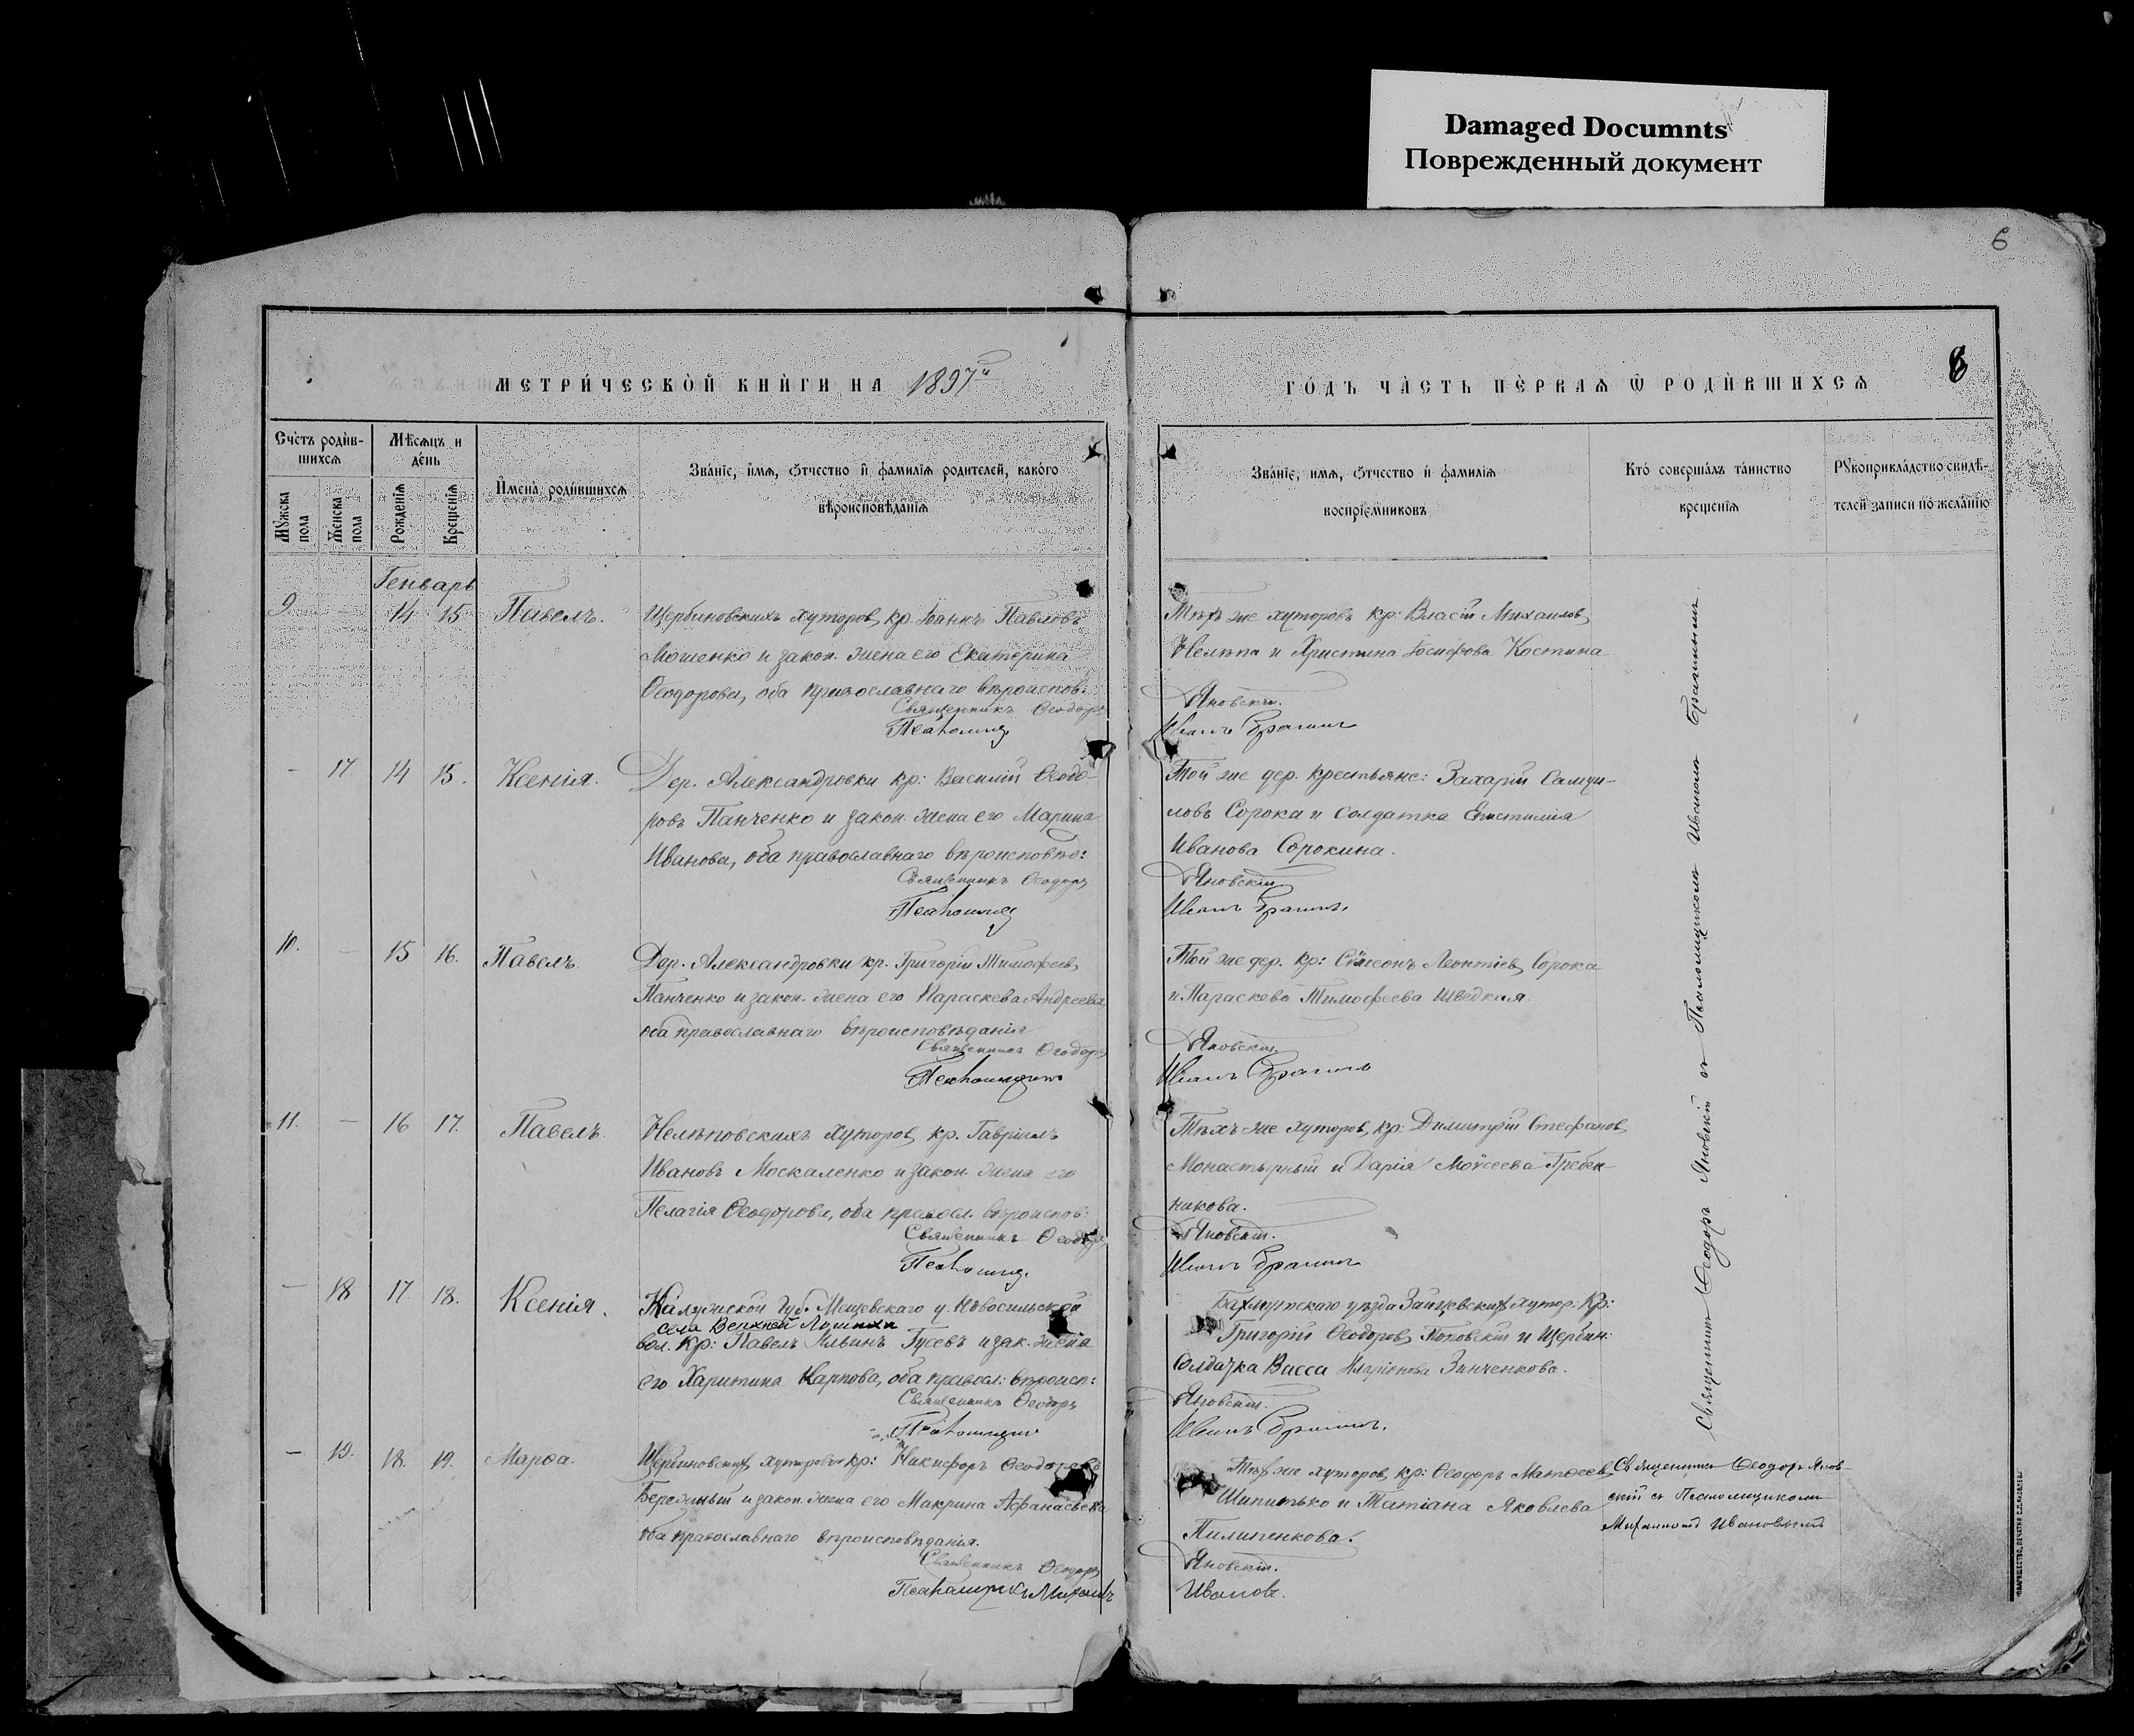 Damaged Documnts
Поврежденный документ
6
МЕТРИ́ЧЕСКОЙ КНИ́ГИ НА 1897й
ГО́ДЪ ЧА́СТЬ ПЕ́РВАѦ Ѿ РОДИ́ВШИХСѦ
6
Сче́тъ роди́в-
шихсѧ
Мѣ́сѧцъ и
де́нь
Мꙋ́жска
пола
Же́нска
пола
Рожде́нїѧ
Креще́нїѧ
И҆мена̀ роди́вшихсѧ
Зва́нїе, и҆́мѧ, ѻ҆́тчество и҆ фамилїѧ родителей, како́го
вѣроисповѣ́данїѧ
Зва́нїе, имѧ, ѻ҆́тчество и҆ фамилїѧ
воспрїе́мниковъ
Кто̀ соверша́лъ та́инство
креще́нїѧ
Рꙋкоприкла́дство свидѣ́-
телей записи по жела́нїю
Генварь
9 — 14 15 Павелъ.
Щербиновскихъ хуторов, кр. Іоаннъ Павловъ
Мошенко и закон. жена его Екатерина
Ѳеодорова, оба православнаго вѣроиспов:
Священникъ Ѳеодоръ
Псаломщ.
Тѣхъ же хуторовъ кр: Власій Михаилов,
Нелѣпа и Христина Іосифова Костина
Яновскій.
Иванъ Брагинъ
— 17 14 15. Ксенія.
Дер. Александровки кр: Василій Ѳеодо-
ровъ Панченко и закон. жена его Марина
Иванова, оба православнаго вѣроисповѣд:
Священникъ Ѳеодоръ
Псаломщ
Той же дер. крестьяне: Захарій Самуи-
ловъ Сорока и солдатка Епистимія
Иванова Сорокина.
Яновскій
Иванъ Брагинъ.
10. — 15 16. Павелъ
Дер. Александровки кр. Григорій Тимофеев,
Панченко и закон. жена его Параскева Андреева,
оба православнаго вѣроисповѣданія
Священникъ Ѳеодоръ
Псаломщикъ
Той же дер. кр: Сѵмеонъ Леонтіев, Сорока
и Параскева Тимофеева Шведкая.
Яновскій.
Иванъ Брагинъ
11. — 16 17. Павелъ
Нелѣповскихъ хуторов, кр. Гавріилъ
Ивановъ Москаленко и закон. жена его
Пелагія Ѳеодорова, оба правосл. вѣроиспов:
Священникъ Ѳеодоръ
Псаломщ.
Тѣхъ же хуторов, кр: Димитрій Стефанов,
Монастырный и Дарія Моѵсеева Гребен-
никова.
Яновскій.
Иванъ Брагинъ
— 18 17 18. Ксенія.
Калужской Губ. Мещевскаго у.
села Верхней
вол. Кр: Павелъ Ильинъ Гусевъ и зак. жена
его Харитина Карпова, оба правосл: вѣроисп:
Священникъ Ѳеодоръ
Псаломщикъ
Бахмутскаго уѣзда Зайцевскихъ хутор: Кр:
Григорій Ѳеодоров, Поповскій и Щербин:
Солдатка Васса Иларіонова Зинченкова.
Яновскій.
Иванъ Брагинъ.
— 19. 18. 19. Марѳа.
Щербиновскихъ хуторовъ кр: Никифоръ Ѳеодоровъ
Бережный и закон. жена его Макрина Афанасьева
оба православнаго вѣроисповѣданія.
Священникъ Ѳеодоръ
Псаломщикъ Михаилъ
Тѣхъ же хуторов, кр: Ѳеодоръ Матѳеев,
Шипитько и Татіана Яковлева
Пилипенкова.
Яновскій.
Иванов.
Священникъ Ѳеодоръ Яновскій съ Псаломщикомъ Иваномъ Брагинымъ.
Священникъ Ѳеодоръ Янов-
скій съ Псаломщикомъ
Михаиломъ Ивановымъ